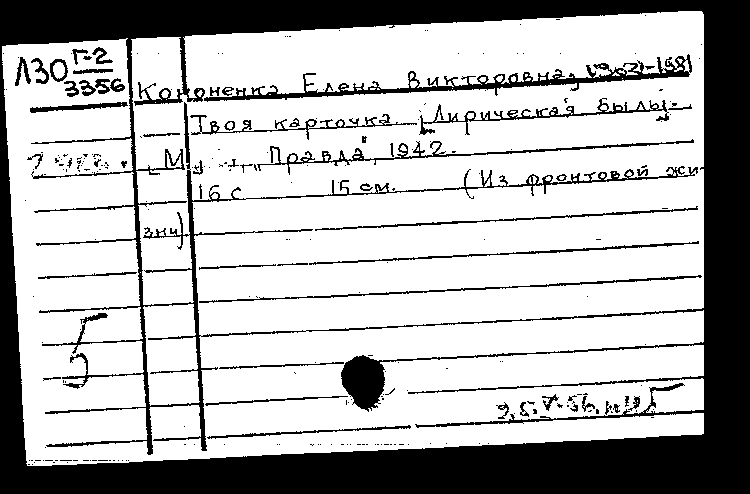 Л30 Г-2
3356
Кононенко, Елена Викторовна, 1903-1981
Твоя карточка. [Лирическая быль].
[М.], "Правда", 1942.
16 с 15 см. (Из фронтовой жи-
зни)
5